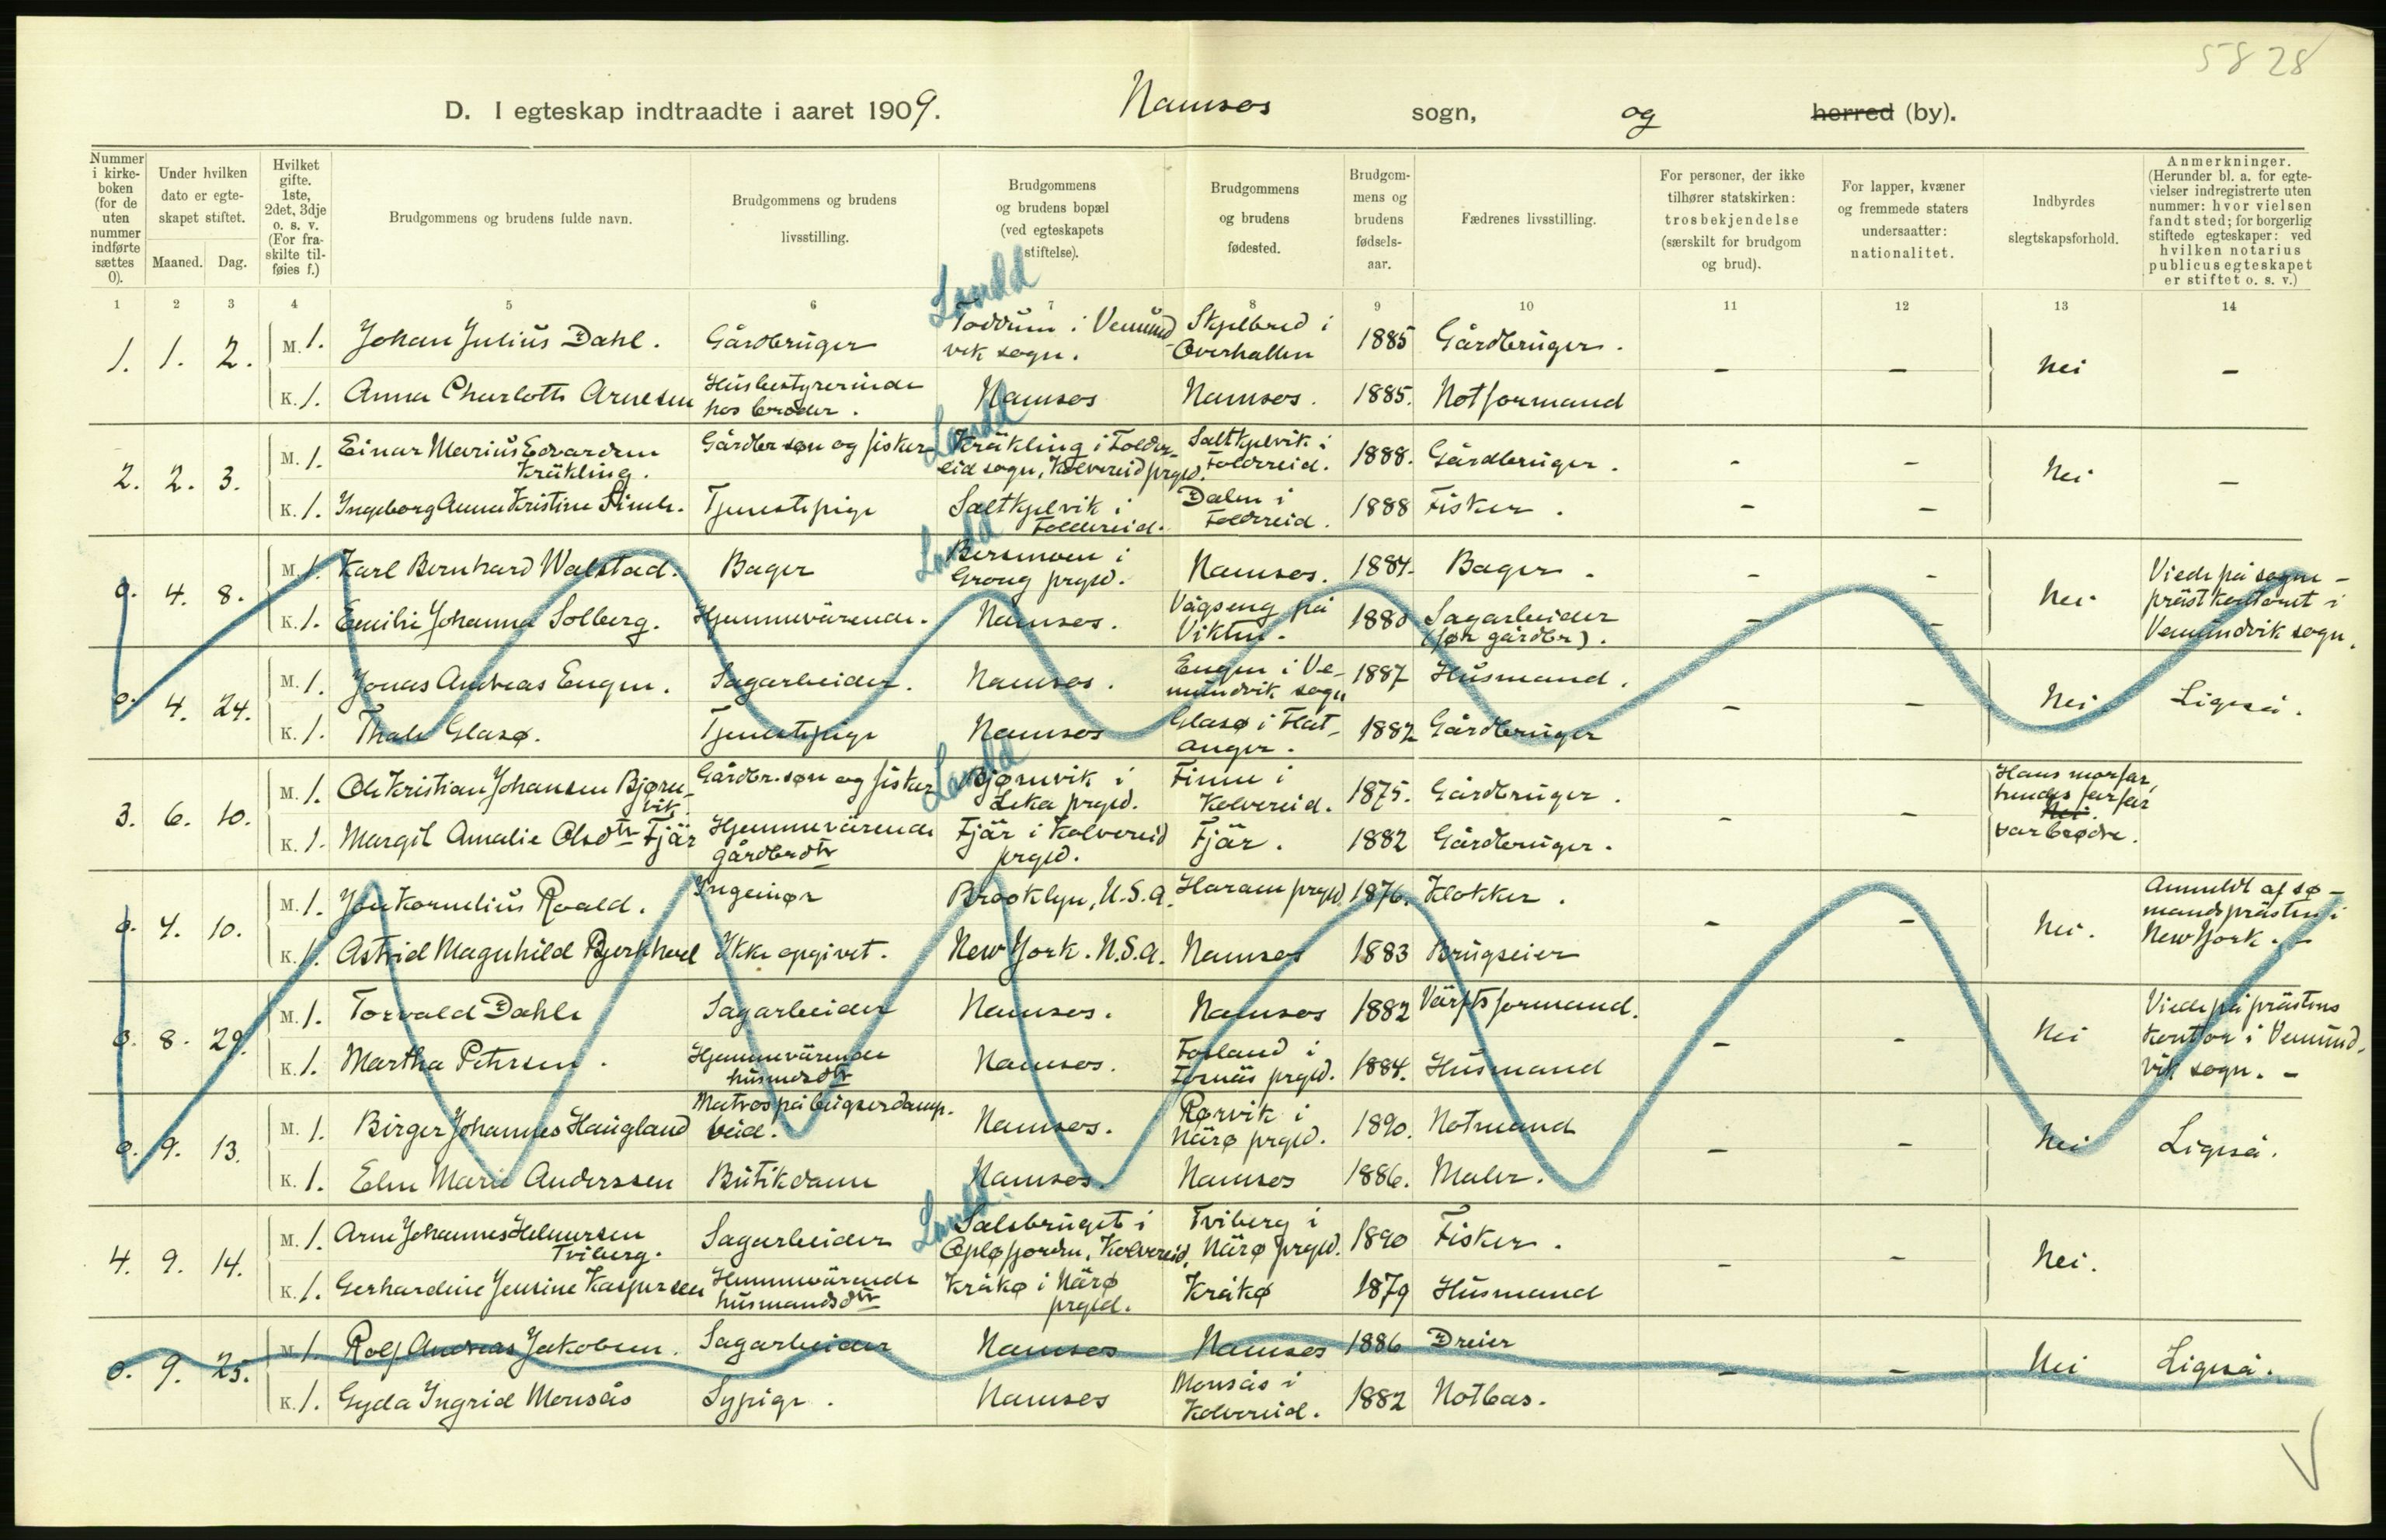 5828
D. I egteskap indtraadte i aaret 1909. Namsos sogn, og herred (by).
Nummer i kirkeboken (for de uten nummer indførte sættes 0).
Under hvilken dato er egteskapet stiftet.
Maaned. Dag.
Hvilket gifte. 1ste, 2det, 3dje o. s. v. (For fraskilte tilføies f.)
Brudgommens og brudens fulde navn.
Brudgommens og brudens livsstilling.
Brudgommens og brudens bopæl (ved egteskapets stiftelse).
Brudgommens og brudens fødested.
Brudgommens og brudens fødselsaar.
Fædrenes livsstilling.
For personer, der ikke tilhører statskirken: trosbekjendelse (særskilt for brudgom og brud).
For lapper, kvæner og fremmede staters undersaatter: nationalitet.
Indbyrdes slegtskapsforhold.
Anmerkninger. (Herunder bl. a. for egtevielser indregistrerte uten nummer: hvor vielsen fandt sted; for borgerlig stiftede egteskaper: ved hvilken notarius publicus egteskapet er stiftet o. s. v.)
1 2 3 4 5 6 7 8 9 10 11 12 13 14
1. 1. 2. M. 1. Johan Julius Dahl. Gårdbruger Landd Toddum i Vemundvik sogn. Skjelbred i Overhallen 1885 Gårdbruger. - - Nei -
K. 1. Anna Charlotte Arnesen Husbestyrerinde hos broder. Namsos Namsos. 1885. Notformand
2. 2. 3. M. 1. Einar Marius Edvardsen Kråkling. Gårdbr søn og fisker Landd Kråkling i Foldereid sogn, Kolvereid prgld. Saltkjelvik i Foldereid. 1888. Gårdbruger. - - Nei -
K. 1. Ingeborg Anna Kristine Tjenestepige Saltkjelvik i Foldereid. Dalen i Foldereid. 1888 Fisker. - -
0. 4. 8. M. 1. Karl Bernhard Walstad. Bager Landd Bersmoen i Grong prgld. Namsos. 1884. Bager. - - Nei Viede på sogneprästkontoret i Vemundvik sogn.
K. 1. Emilie Johanna Solberg. Hjemmeværende. Namsos. Vågseng på Vikten. 1880 Sagarbeider (før gårdbr). - -
0. 4. 24. M. 1. Jonas Andreas Engen. Sagarbeider. Namsos. Engen i Vemundvik sogn 1887 Husmand. - - Nei Ligeså.
K. 1. Thale Glasø. Tjenestepige Namsos Glasø i Flatanger. 1882 Gårdbruger
3. 6. 10. M. 1. Ole Kristian Johansen Bjørnvik. Gårdbr. søn og fisker Landd Bjørnvik i Leka prgld. Finne i Kolvereid. 1875. Gårdbruger. - - Hans morfar, hendes farfar Nei. var brødre.
K. 1. Margit Amalie Olsdtr Fjär Hjemmeværende gårdbrdtr Fjär i Kolvereid prgld. Fjär. 1882 Gårdbruger.
0. 4. 10. M. 1. Jon Kornelius Roald. Ingeniør Brooklyn, U.S.A. Haram prgld. 1876. Klokker. - - Nei. Anmeldt af sømandsprästen i New York. -
K. 1. Astrid Magnhild Bjerkhoel Ikke opgivet. New York. N.S.A. Namsos 1883 Brugseier
0. 8. 29. M. 1. Torvald Dahle Sagarbeider Namsos. Namsos 1882 Värftsformand. - - Nei Viede på prästens kontor i Vemundvik sogn. -
K. 1. Martha Petersen. Hjemmeværende husmdsdtr Namsos. Fosland i Fosnäs prgld. 1884. Husmand
0. 9. 13. M. 1. Birger Johannes Haugland Matros på bugserdamp. Namsos. Rørvik i Närø prgld. 1890. Notmand - - Nei Ligeså.
K. 1. Elen Marie Anderssen Butikdame Namsos. Namsos 1886. Maler.
4. 9. 14. M. 1. Arne Johannes Helmersen Tviberg. Sagarbeider Landd Salsbruget i Opløfjorden, Kolvereid. Tviberg i Närø prgld. 1890 Fisker. - - Nei.
K. 1. Gerhardine Jensine Kaspersen Hemmeværende husmandsdtr Kråkø i Närø prgld. Kråkø 1879 Husmand
0. 9. 25. M. 1. Rolf Andreas Jakobsen. Sagarbeider Namsos Namsos 1886 Dreier - - Nei Ligeså.
K. 1. Gyda Ingrid Monsås Sypige. Namsos Monsås i Kolvereid. 1882 Notbas.